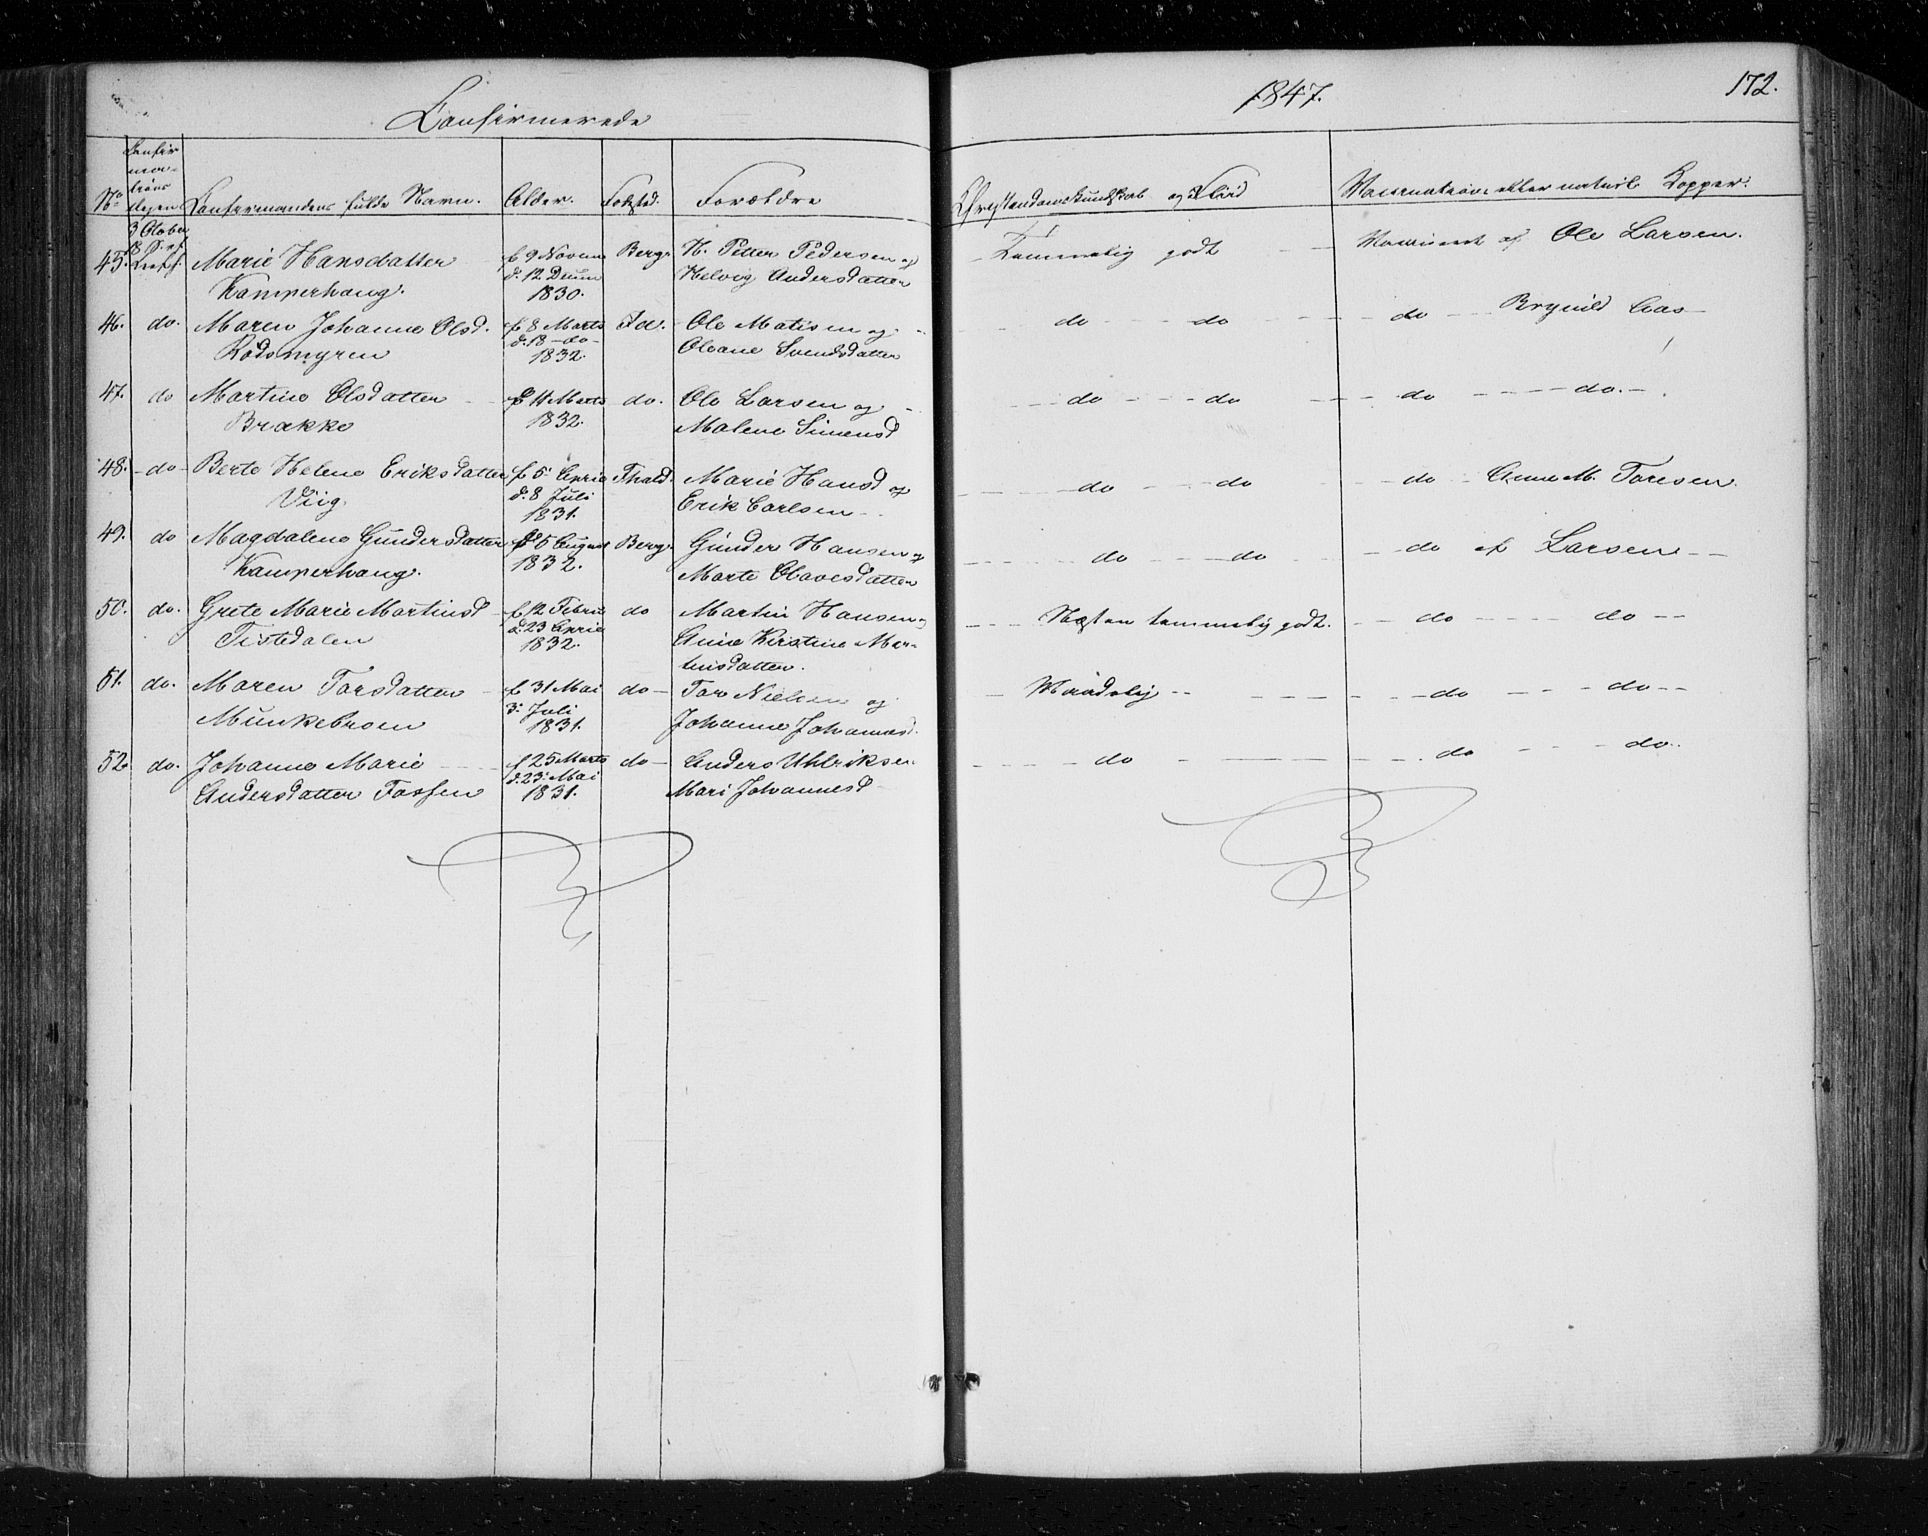 Confirmerede
1847.
172.
No Confirmationsdagen Confirmandens fulde Navn. Alder. Fødsted. Forældre Christendoms Kundskab og Flid Vaccination eller naturl. Kopper.
3 Octobr
45. Marie Hansdatter f 9 Novem Berg H. Petter Pedersen og Temmelig godt Vaccineret af Ole Larsen.
Kamperhaug. d. 12 Decem Helvig Andersdatter
1830.
46. do. Maren Johanne Olsd. f 8 Marts Id. Ole Matisen og do do do Brynild Aas
Rødsmyren d. 18 do Oleane Svendsdatter
1832.
47. do Martine Olsdatter f 11 Marts do. Ole Larsen og do do do do.
Brække 1832. Malene Simensd
48. do Berte Helene Eriksdatter f 5 April Fhald. Marie Hansd og do do do Anne M. Toresen.
Viig. d. 8 Juli Erik Carlsen
1831.
49. do Magdalene Gundersdatter 5 August Berg. Gunder Hansen og do do do af Larsen
Kamperhaug. 1832. Marte Olavesdatter
50. do. Grete Marie Martinsd f 12 Febru do Martin Hansen og Næsten temmelig godt. do do
Tistedalen d. 23 April Anne Kirstine Mar-
1832. tinsdatter.
51. do. Maren Torsdatter f 31 Mai do Tor Nielsen og Maadelig do do
Munkebroen 3: Juli Johanne Johannesd.
1831.
52 do. Johanne Marie f 25 Marts do Anders Uhlriksen do do do.
Andersdatter Fossen d. 23: Mai Mari Johannesd
1831.